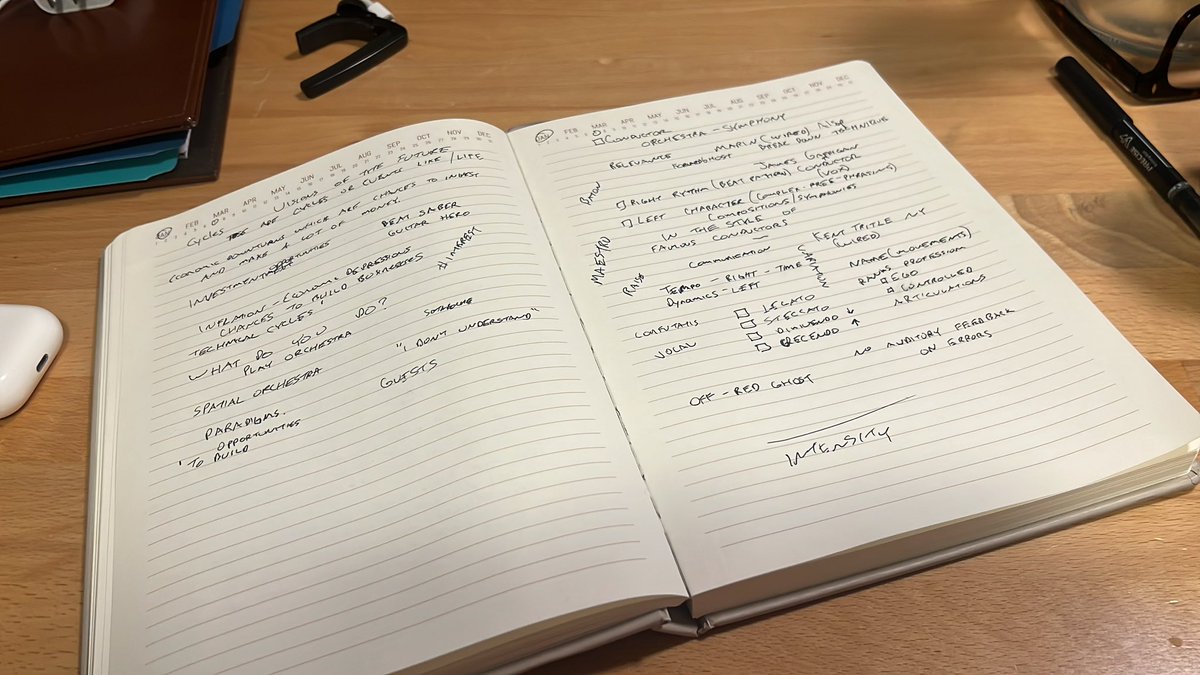 JAN FEB MAR APR MAY JUN JUL AUG SEP OCT NOV DEC
VISIONS OF THE FUTURE
CYCLES ARE CYCLES OR CURVES LIKE/LIFE
ECONOMIC DOWNTURNS WHICH ARE CHANCES TO INVEST
AND MAKE A LOT OF MONEY.
INVESTMENT OPPORTUNITIES
BEAT SABER
GUITAR HERO
INFLATION - ECONOMIC DEPRESSIONS
CHANCES TO BUILD BUSINESSES
TECHNICAL CYCLES
INTEREST
WHAT DO YOU DO?
PLAY ORCHESTRA
"I DON'T UNDERSTAND"
SPATIAL ORCHESTRA
GUISTS
PARADIGMS.
OPPORTUNITIES
TO BUILD
JAN FEB MAR APR MAY JUN JUL AUG SEP OCT NOV DEC
CONDUCTOR
ORCHESTRA - SYMPHONY
RELEVANCE MARIN (WIRED) ALSOP
BREAK DOWN TECHNIQUE
JAMES GAFFIGAN
CONDUCTOR
(VOX)
RIGHT RYTHM (BEAT PATTERN)
LEFT CHARACTER (COMPLEX FREE-PHRATIONS)
COMPOSITIONS/SYMPHONIES
IN THE STYLE OF
FAMOUS CONDUCTORS
BATON
MAESTRO
RAISE
COMMUNICATION
KENT TRITLE NY
(WIRED)
TEMPO - RIGHT - TIME
DYNAMICS - LEFT
NAME (MOVEMENTS)
PROFESSION
EGO
CONTROLLED
ARTICULATIONS
CONFUTATIS
VOCAL
LEGATO
STECCATO
DIMINUENDO ↓
CRECENDO ↑
NO AUDITORY FEEDBACK
ON ERRORS
OFF - RED GHOST
INTENSITY
PRECISE V5